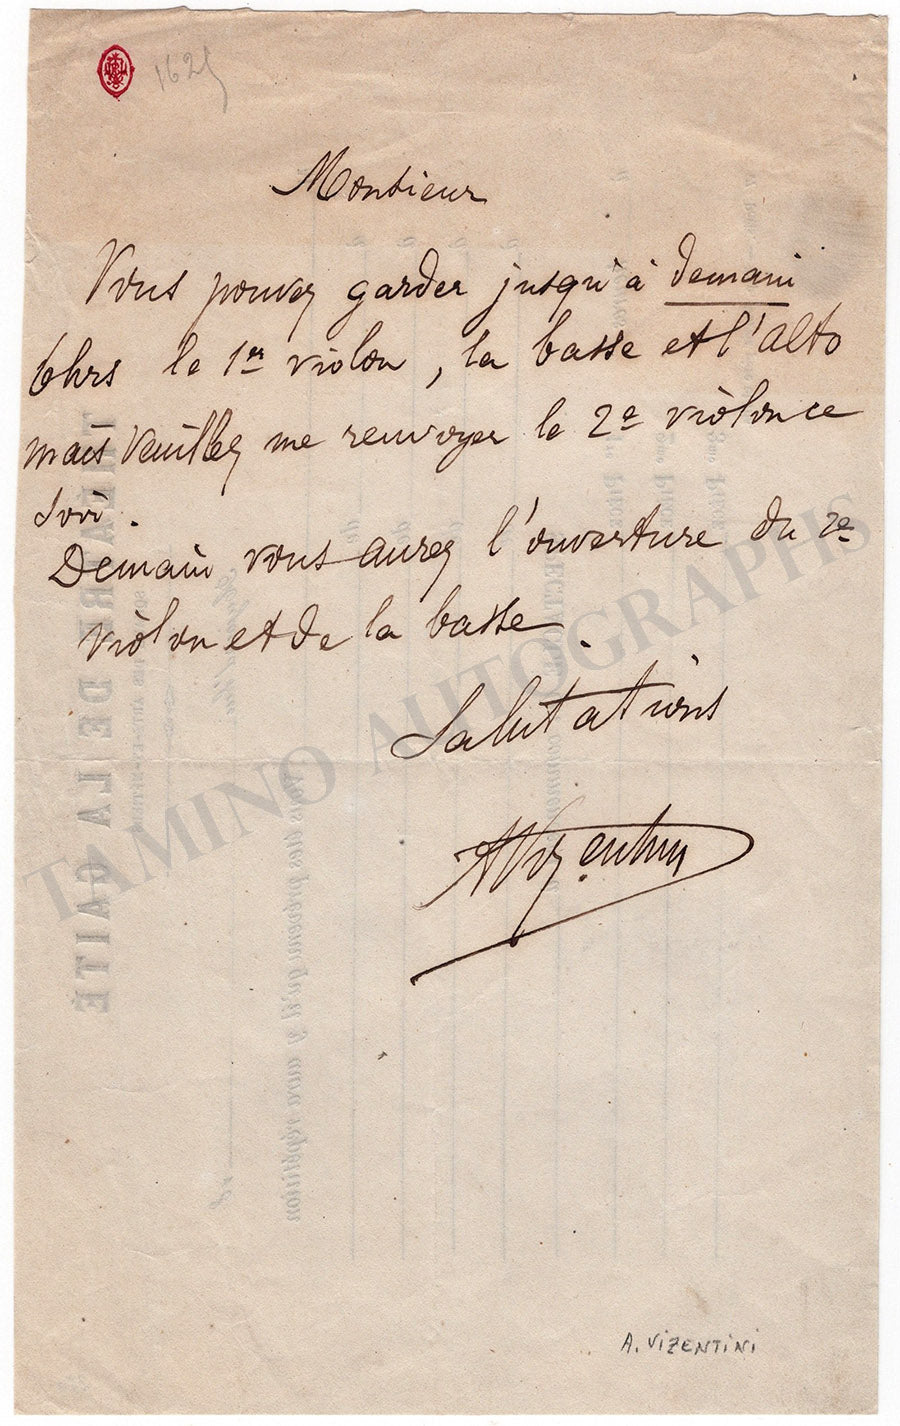 1625
Monsieur
Vous pouvez garder jusqu'à demain
6hrs le 1er violon, la basse et l'alto
mais veuillez me renvoyer le 2e violon ce
soir.
Demain vous aurez l'ouverture du 2e
violon et de la basse.
Salutations
AVizentini
A. VIZENTINI
TAMINO AUTOGRAPHS
THÉATRE DE LA GAITÉ
Vous êtes prévenu qu'il y aura répétition